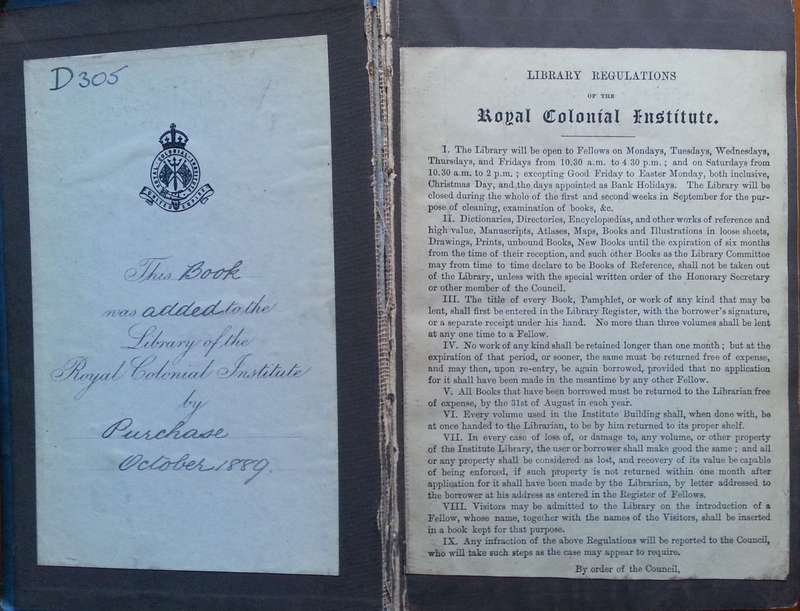 D 305
ROYAL COLONIAL INSTITUTE
UNITED EMPIRE
This Book
was added to the
Library of the
Royal Colonial Institute
by
Purchase
October 1889.
LIBRARY REGULATIONS
OF THE
Royal Colonial Institute.
I. The Library will be open to Fellows on Mondays, Tuesdays, Wednesdays,
Thursdays, and Fridays from 10.30 a.m. to 4 30 p.m. ; and on Saturdays from
10.30 a.m. to 2 p.m. ; excepting Good Friday to Easter Monday, both inclusive,
Christmas Day, and the days appointed as Bank Holidays. The Library will be
closed during the whole of the first and second weeks in September for the pur-
pose of cleaning, examination of books, &c.
II. Dictionaries, Directories, Encyclopædias, and other works of reference and
high value, Manuscripts, Atlases, Maps, Books and Illustrations in loose sheets,
Drawings, Prints, unbound Books, New Books until the expiration of six months
from the time of their reception, and such other Books as the Library Committee
may from time to time declare to be Books of Reference, shall not be taken out
of the Library, unless with the special written order of the Honorary Secretary
or other member of the Council.
III. The title of every Book, Pamphlet, or work of any kind that may be
lent, shall first be entered in the Library Register, with the borrower's signature,
or a separate receipt under his hand. No more than three volumes shall be lent
at any one time to a Fellow.
IV. No work of any kind shall be retained longer than one month ; but at the
expiration of that period, or sooner, the same must be returned free of expense,
and may then, upon re-entry, be again borrowed, provided that no application
for it shall have been made in the meantime by any other Fellow.
V. All Books that have been borrowed must be returned to the Library free
of expense, by the 31st of August in each year.
VI. Every volume used in the Institute Building shall, when done with, be
at once handed to the Librarian, to be by him returned to its proper shelf.
VII. In every case of loss of, or damage to, any volume, or other property
of the Institute Library, the user or borrower shall make good the same ; and all
or any property shall be considered as lost, and recovery of its value be capable
of being enforced, if such property is not returned within one month after
application for it shall have been made by the Librarian, by letter addressed to
the borrower at his address as entered in the Register of Fellows.
VIII. Visitors may be admitted to the Library on the introduction of a
Fellow, whose name, together with the names of the Visitors, shall be inserted
in a book kept for that purpose.
IX. Any infraction of the above Regulations will be reported to the Council,
who will take such steps as the case may appear to require.
By order of the Council,